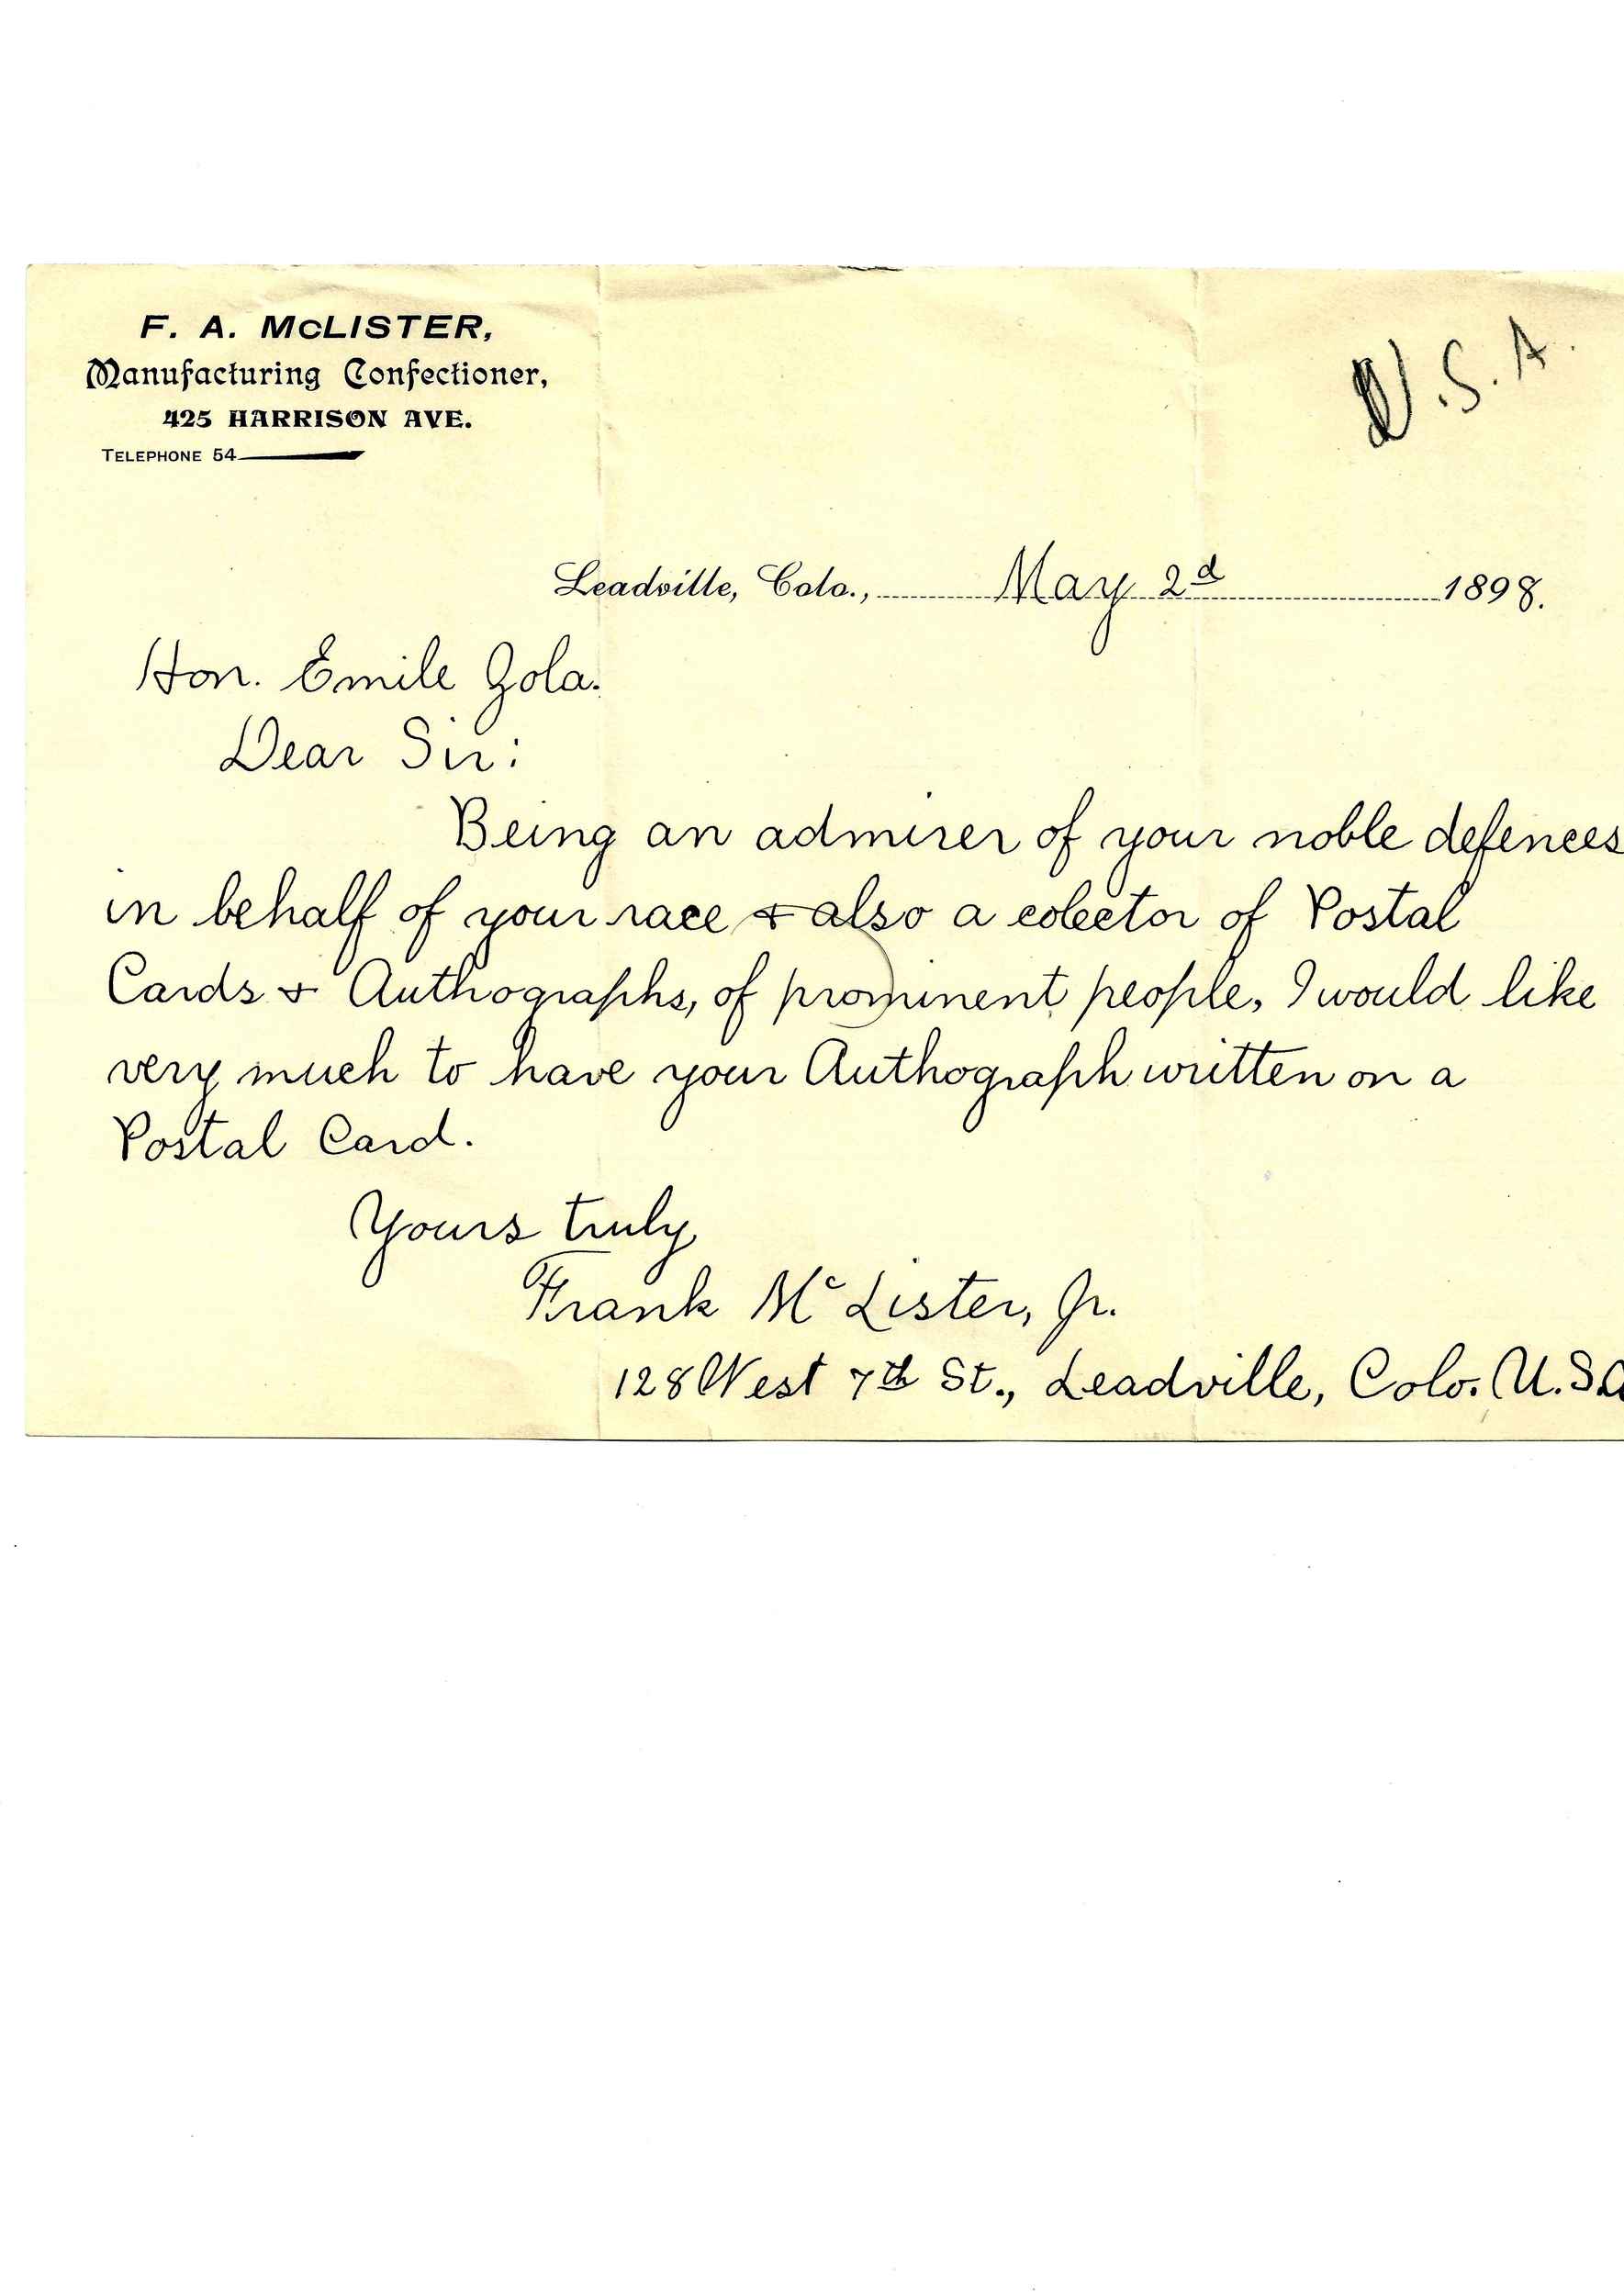 F. A. McLISTER,
Manufacturing Confectioner,
425 HARRISON AVE.
TELEPHONE 54
U.S.A.
Leadville, Colo., May 2d 1898.
Hon. Emile Zola.
Dear Sir:
Being an admirer of your noble defences
in behalf of your race & also a colector of Postal
Cards & Authographs, of prominent people, I would like
very much to have your Authograph written on a
Postal Card.
Yours truly
Frank Mc Lister, Jr.
128 West 7th St., Leadville, Colo. U.S.A